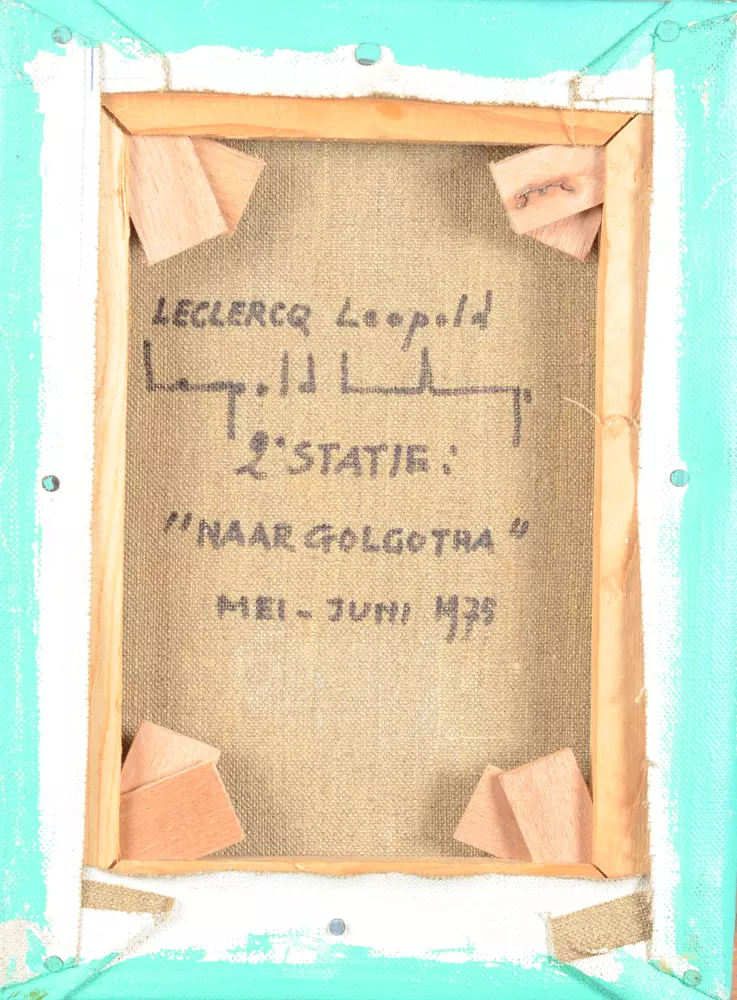 LECLERCQ Leopold
Leopold L
2° STATIE:
"NAAR GOLGOTHA"
MEI - JUNI 1975